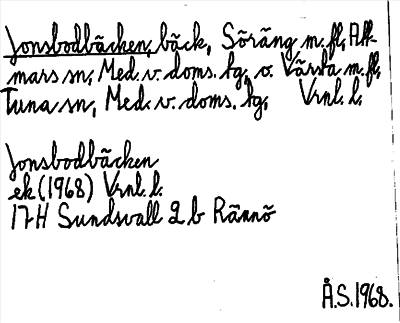 Jonsbodbäcken, bäck, Söräng m.fl, Att-
mars sn, Med. v. doms. tg, o. Värsta m.fl,
Tuna sn, Med. v. doms. tg, Vrnl. l.
Jonsbodbäcken
ek (1968) Vrnl. l.
17H Sundsvall 2 b Rännö
Å.S. 1968.